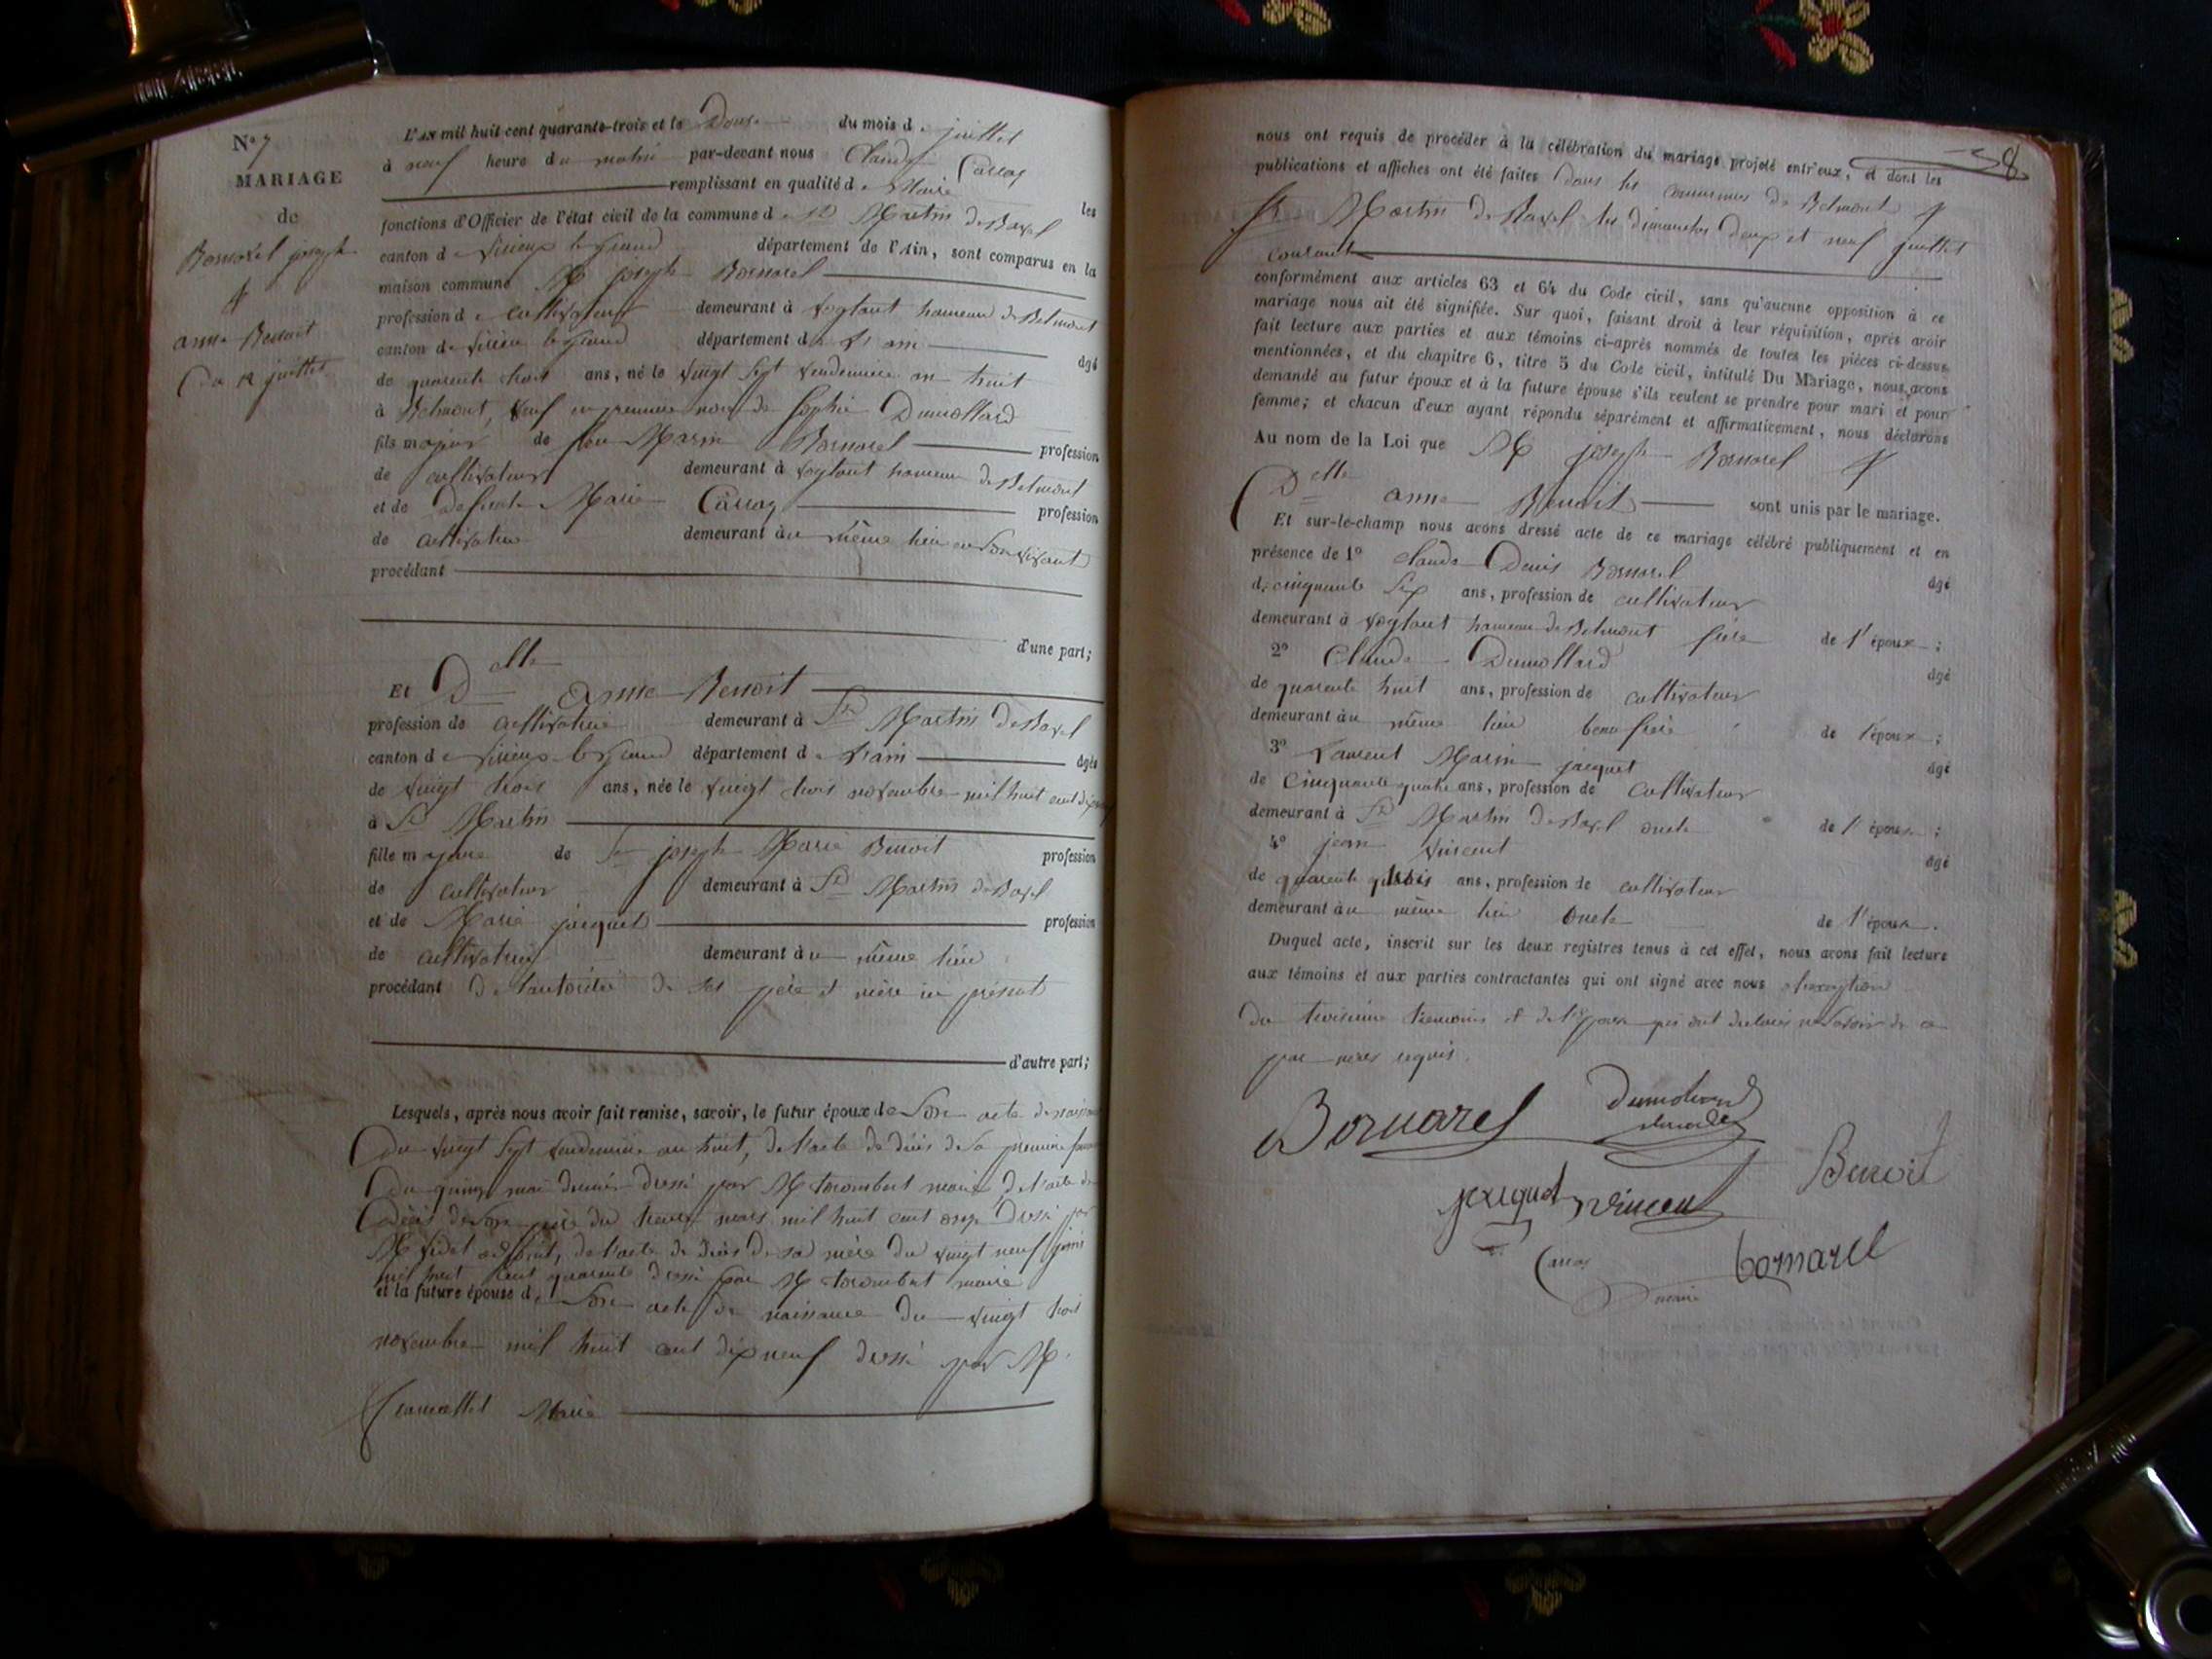 N° 7
MARIAGE
de
Bornarel joseph
&
anne Benoit
Du 12 juillet
L'AN mil huit cent quarante-trois et le Douze du mois de juillet
à neuf heure du matin par-devant nous Claude Carron
remplissant en qualité de Maire les
fonctions d'Officier de l'état civil de la commune de St Martin de Bavel
canton de virieux le grand département de l'Ain, sont comparus en la
maison commune M joseph Bornarel
profession de cultivateur demeurant à vogland hameau de Belmont
canton de virieu le grand département de l'ain âgé
de quarente trois ans, né le vingt sept vendemiaire an huit
à Belmont, veuf en premiere noce de Sophie Dumollard
fils majeur de feu Marin Bornarel profession
de cultivateur demeurant à hameau de Belmont
et de defunte Marie Carron profession
de cultivateur demeurant au même lieu en son vivant
procédant
d'une part;
Et Delle anne Benoit
profession de cultivatrice demeurant à St Martin de Bavel
canton de virieux le grand département de l'ain âgée
de vingt trois ans, née le vingt trois novembre mil huit cent dix neuf
à St Martin
fille majeure de joseph Marie Benoit profession
de cultivateur demeurant à St Martin de Bavel
et de Marie jacquet profession
de cultivatrice demeurant au même lieu
procédant de l'autorité de ses père et mère ici présent
d'autre part;
Lesquels, après nous avoir fait remise, savoir, le futur époux de Son acte de naissance
du vingt sept vendemiaire an huit, de l'acte de décès de sa premiere femme
du quinze mai dernier dressé par M trombert maire, de l'acte de
Décès de son père du mars mil huit cent onze Dressé par
M adjoint, de l'acte de décès de sa mère du vingt neuf juin
mil huit cent quarante dressé par M trombert maire
et la future épouse de Son acte de naissance du vingt trois
novembre mil huit cent dix neuf dressé par M
Maire
38
nous ont requis de procéder à la célébration du mariage projeté entr'eux, et dont les
publications et affiches ont été faites dans les communes de Belmont &
St Martin de Bavel les dimanches deux et neuf juillet
courant
conformément aux articles 63 et 64 du Code civil, sans qu'aucune opposition à ce
mariage nous ait été signifiée. Sur quoi, faisant droit à leur réquisition, après avoir
fait lecture aux parties et aux témoins ci-après nommés de toutes les pièces ci-dessus
mentionnées, et du chapitre 6, titre 5 du Code civil, intitulé Du Mariage, nous avons
demandé au futur époux et à la future épouse s'ils veulent se prendre pour mari et pour
femme; et chacun d'eux ayant répondu séparément et affirmativement, nous déclarons
Au nom de la Loi que M joseph Bornarel &
Delle anne Benoit sont unis par le mariage.
Et sur-le-champ nous avons dressé acte de ce mariage célébré publiquement et en
présence de 1° claude Denis Bornarel âgé
de cinquante six ans, profession de cultivateur
demeurant à vogland hameau de Belmont frère de l'époux;
2° Claude Dumollard âgé
de quarente huit ans, profession de cultivateur
demeurant au même lieu beau frère de l'époux;
3° Laurent Marin jacquet âgé
de Cinquante quatre ans, profession de Cultivateur
demeurant à St Martin de Bavel oncle de l'épouse;
4° jean vincent âgé
de quarente trois ans, profession de cultivateur
demeurant au même lieu oncle de l'épouse.
Duquel acte, inscrit sur les deux registres tenus à cet effet, nous avons fait lecture
aux témoins et aux parties contractantes qui ont signé avec nous à l'exception
du troisième témoins et de l'épouse qui ont declaré ne savoir de ce
par nous requis.
Bornarel Dumollard
claude
jacquet vincent Benoit
Carron bornarel
maire